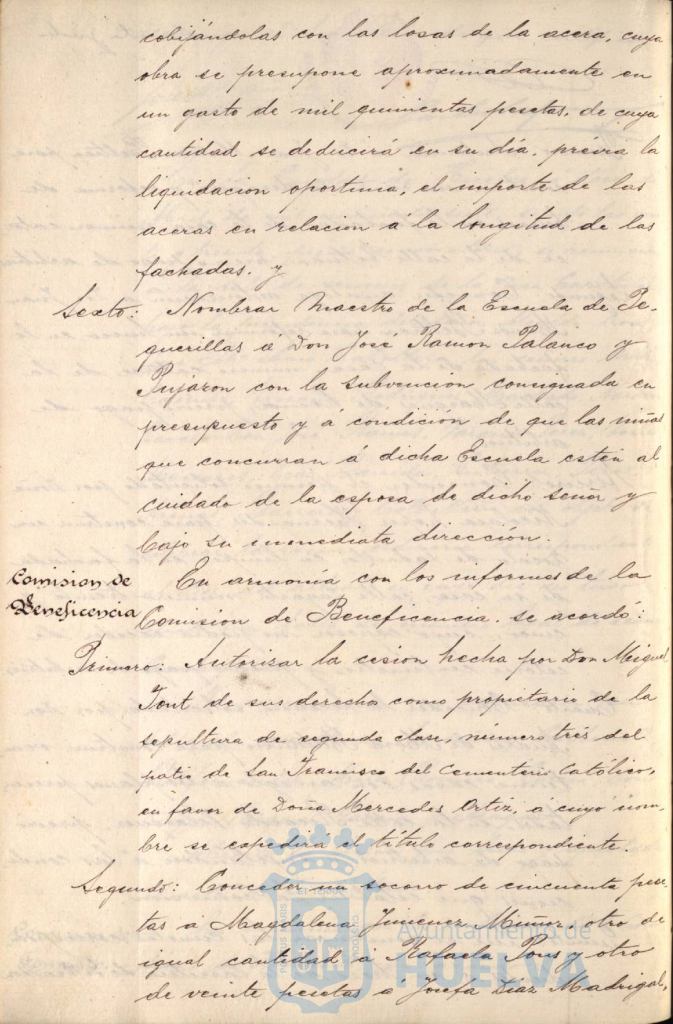 cobijándolas con las losas de la acera, cuya
obra se presupone aproximadamente en
un gasto de mil quinientas pesetas, de cuya
cantidad se deducirá en su día, prévia la
liquidacion oportuna, el importe de las
aceras en relacion á la longitud de las
fachadas. y
Sexto: Nombrar Maestro de la Escuela de Pe-
querillas á Don José Ramon Palanco y
Pujaron con la subvencion consignada en
presupuesto y á condición de que las niñas
que concurran á dicha Escuela estén al
cuidado de la esposa de dicho señor y
bajo su inmediata dirección.
Comision de
Beneficencia
En armonía con los informes de la
Comision de Beneficencia, se acordó:
Primero: Autorizar la cesion hecha por Don Miguel
Font de sus derechos como propietario de la
sepultura de segunda clase, número trés del
patio de San Francisco del Cementerio Católico,
en favor de Doña Mercedes Ortiz, á cuyo nom-
bre se expedirá el título correspondiente.
Segundo: Conceder un socorro de cincuenta pese-
tas á Magdalena Jimenez Muñoz, otro de
igual cantidad á Rafaela Pons y otro
de veinte pesetas á Josefa Diaz Madrigal,
Ayuntamiento de
HUELVA